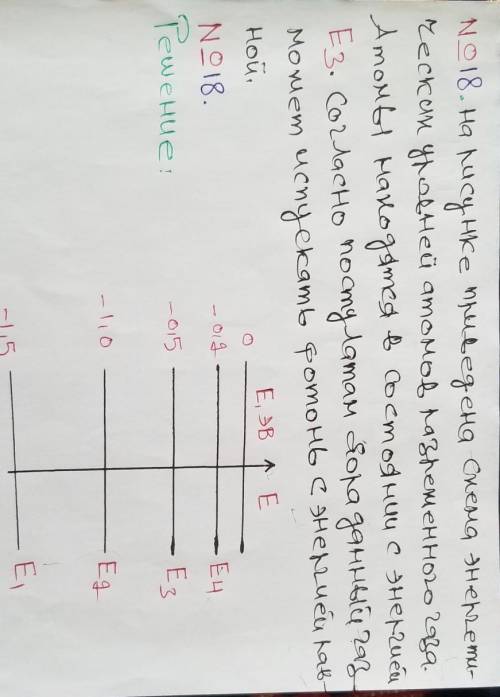 №18. На рисунке приведена схема энергети-
ческих уровней атомов разреженного газа.
Атомы находятся в состоянии с энергией
E3. Согласно постулатам Бора данный газ
может испускать фотоны с энергией рав-
ной.
№18.
Решение:
E, эВ E
0
-0,2 E4
-0,5 E3
-1,0 E2
-1,5 E1